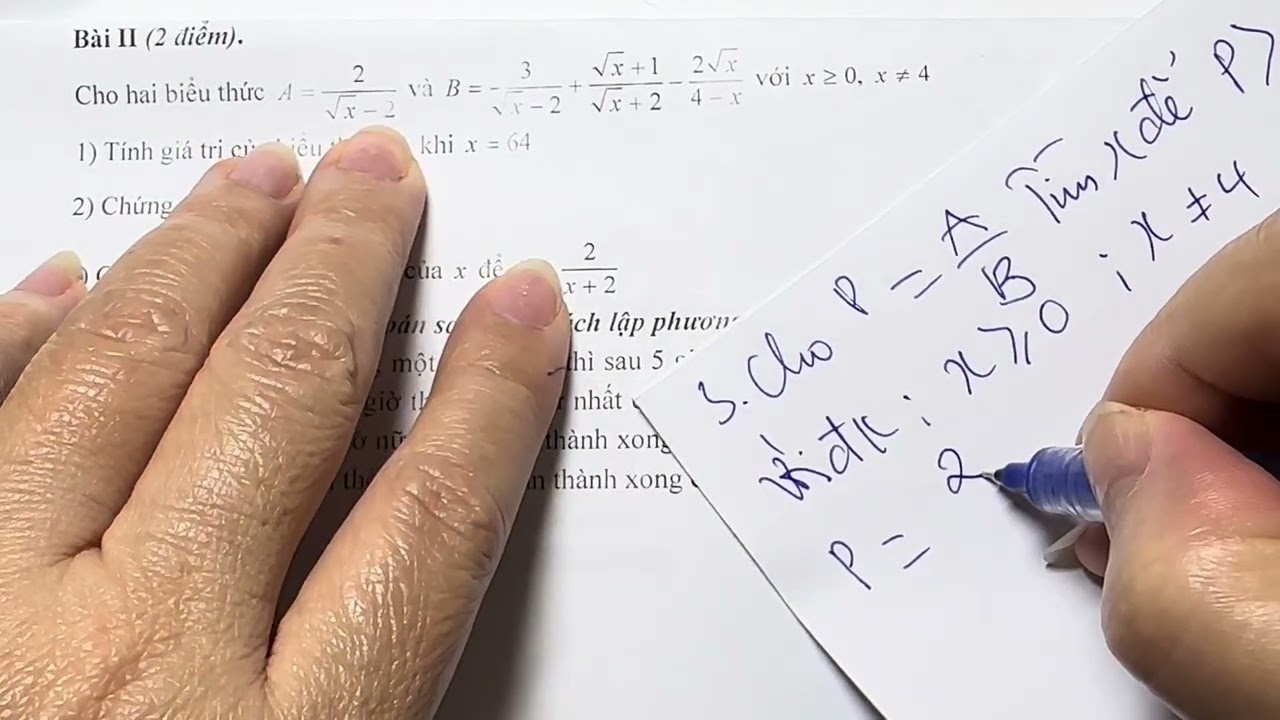 Bài II (2 điểm).
Cho hai biểu thức A = 2/(√x − 2) và B = -3/(√x − 2) + (√x + 1)/(√x + 2) − 2√x/(4 − x) với x ≥ 0, x ≠ 4
1) Tính giá trị khi x = 64
2) Chứng
của x để 2/(x + 2)
lập phương
một thì sau 5
giờ nhất
thành xong
thành xong
3. Cho P = A/B Tìm x để P >
với đk : x ≥ 0 ; x ≠ 4
P = 2